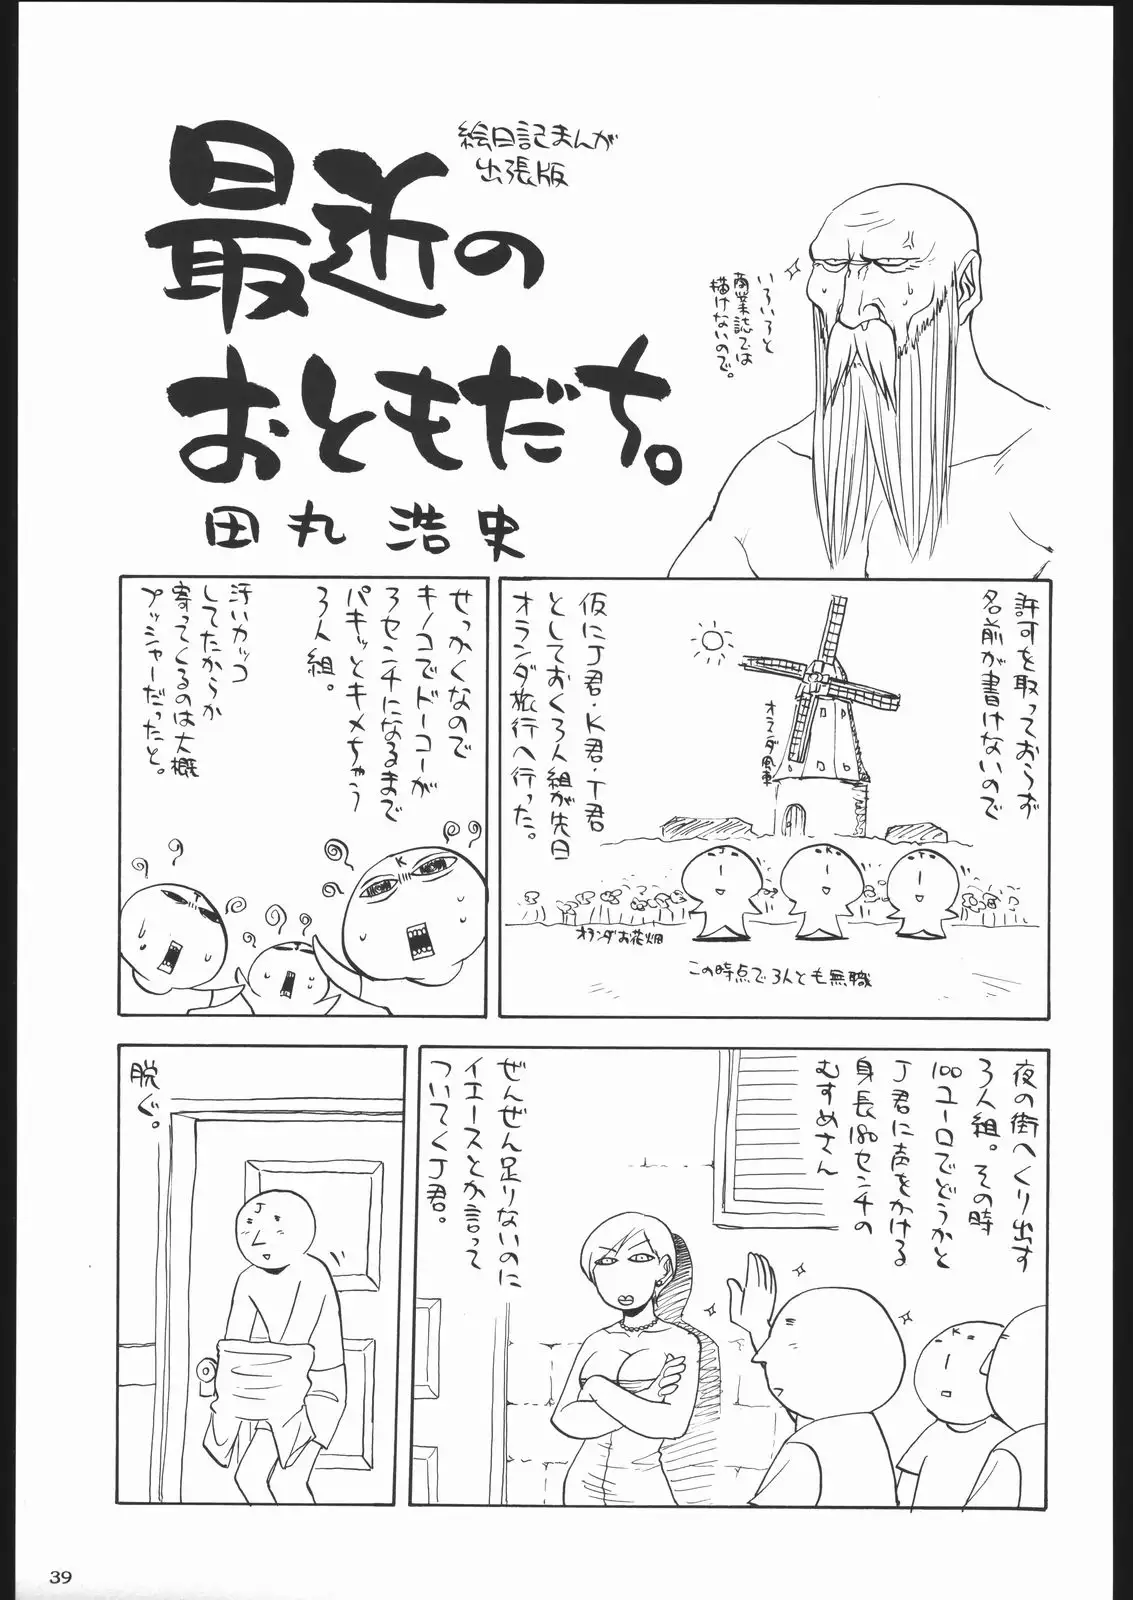 絵日記まんが
出張版
最近の
おともだち。
田丸浩史
いろいろと
商業誌では
描けないので。
許可を取っておらず
名前が書けないので
仮にJ君・K君・T君
としておく3人組が先日
オランダ旅行へ行った。
オランダ風車
J
K
T
オランダお花畑
この時点で3人とも無職
せっかくなので
キノコでドーコーが
3センチになるまで
バキッとキメちゃう
3人組。
汚いカッコ
してたからか
寄ってくるのは大概
プッシャーだったと。
K
T
J
夜の街へくり出す
3人組。その時
100ユーロでどうかと
J君に声をかける
身長180センチの
むすめさん
ぜんぜん足りないのに
イエースとか言って
ついてくJ君。
K
脱ぐ。
J
39